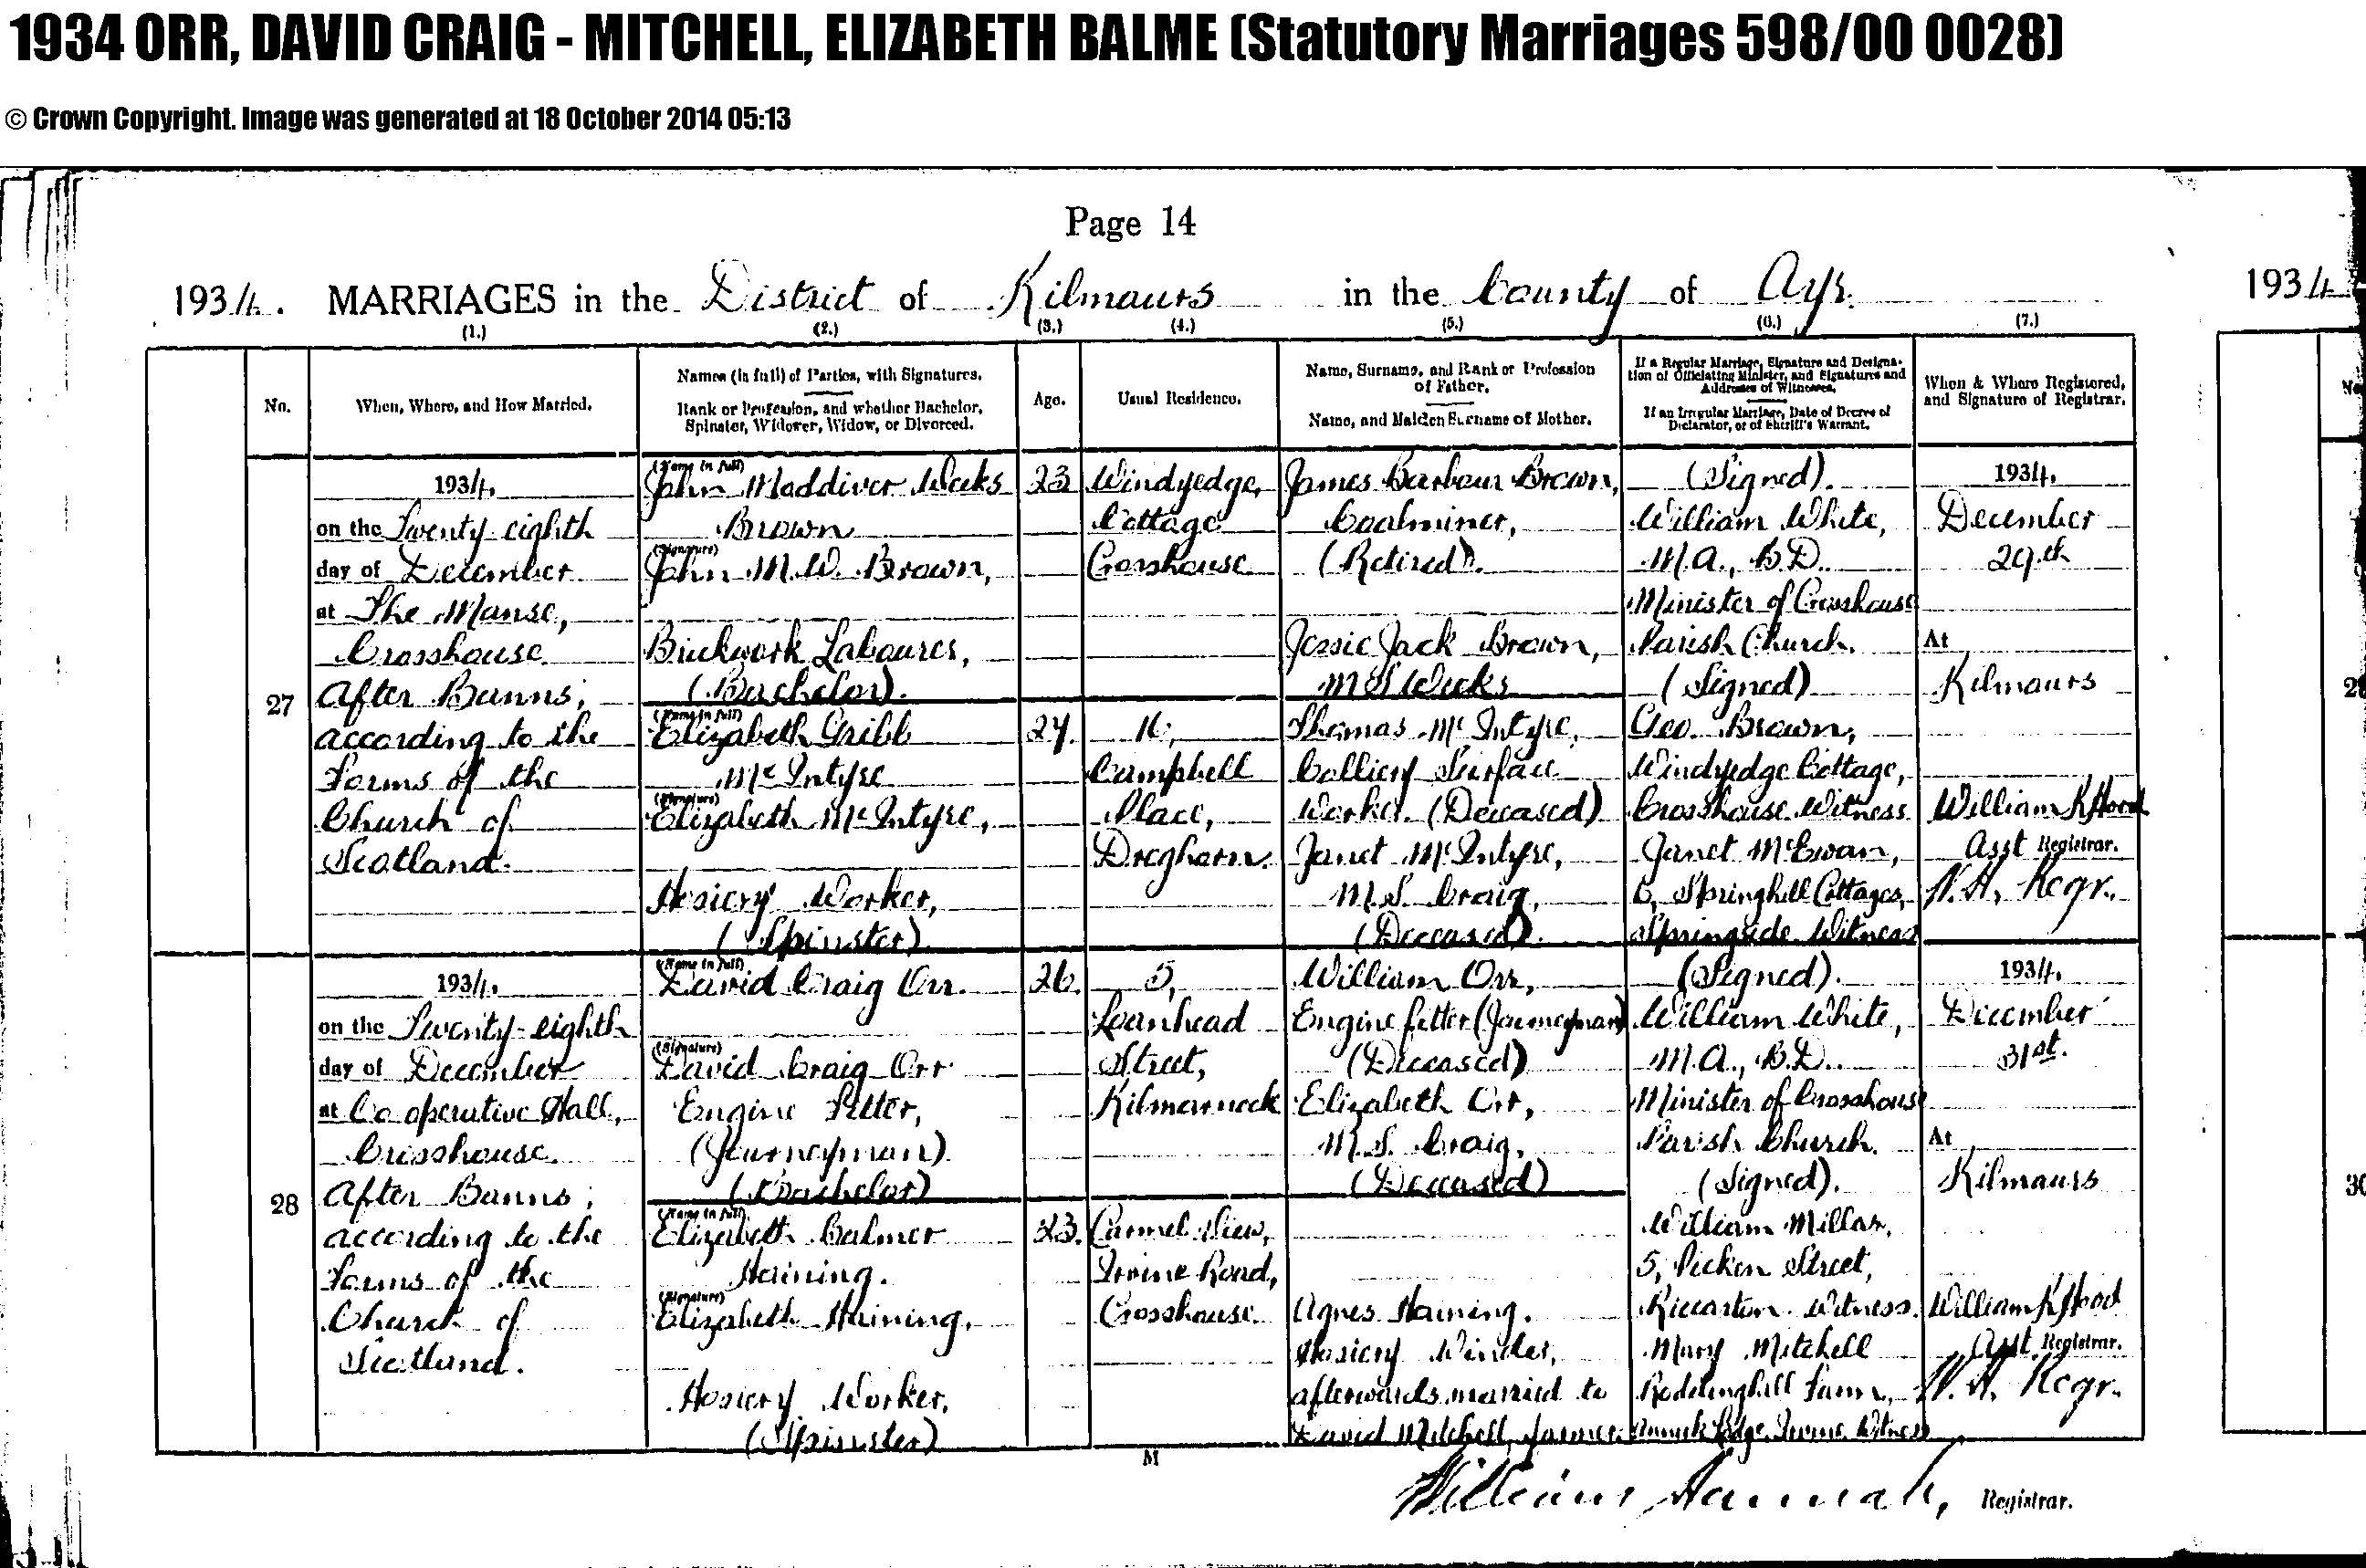 1934 ORR, DAVID CRAIG - MITCHELL, ELIZABETH BALME (Statutory Marriages 598/00 0028)
© Crown Copyright. Image was generated at 18 October 2014 05:13
Page 14
1934. MARRIAGES in the District of Kilmaurs in the County of Ayr.
1934
(1.) (2.) (3.) (4.) (5.) (6.) (7.)
No.
When, Where, and How Married.
Names (in full) of Parties, with Signatures.
Rank or Profession, and whether Bachelor,
Spinster, Widower, Widow, or Divorced.
Age.
Usual Residence.
Name, Surname, and Rank or Profession
of Father.
Name, and Maiden Surname of Mother.
If a Regular Marriage, Signature and Designa-
tion of Officiating Minister, and Signatures and
Addresses of Witnesses.
If an Irregular Marriage, Date of Decree of
Declarator, or of Sheriff's Warrant.
When & Where Registered,
and Signature of Registrar.
27
1934,
on the Twenty-eighth
day of December
at The Manse,
Crosshouse.
After Banns,
according to the
Forms of the
Church of
Scotland.
(Name in full)
John Maddiver Weeks
Brown
(Signature)
John M.W. Brown,
Brickwork Labourer,
(Bachelor).
(Name in full)
Elizabeth Gribb
McIntyre
(Signature)
Elizabeth McIntyre,
Hosiery Worker,
(Spinster).
23
24.
Windyedge,
Cottage
Crosshouse
16,
Campbell
Place,
Dreghorn.
James Barbour Brown,
Coalminer,
(Retired).
Jessie Jack Brown,
M.S. Weeks
Thomas McIntyre,
Colliery Surface
Worker. (Deceased)
Janet McIntyre,
M.S. Craig,
(Deceased).
(Signed).
William White,
M.A., B.D.
Minister of Crosshouse
Parish Church.
(Signed)
Geo. Brown,
Windyedge Cottage,
Crosshouse. Witness
Janet McEwan,
6, Springhill Cottages,
Springside. Witness
1934,
December
29th
At
Kilmaurs
William K Hood
Asst Registrar.
W.H. Regr.
28
1934,
on the Twenty-eighth
day of December
at Co operative Hall,
Crosshouse.
After Banns,
according to the
Forms of the
Church of
Scotland.
(Name in full)
David Craig Orr.
(Signature)
David Craig Orr
Engine Fitter,
(Journeyman)
(Bachelor)
(Name in full)
Elizabeth Balmer
Haining.
(Signature)
Elizabeth Haining.
Hosiery Worker,
(Spinster)
26.
23.
5,
Loanhead
Street,
Kilmarnock
Carmel View,
Irvine Road,
Crosshouse.
William Orr,
Engine Fitter (Journeyman)
(Deceased)
Elizabeth Orr,
M.S. Craig,
(Deceased)
Agnes Haining.
Hosiery Winder,
afterwards married to
David Mitchell, Farmer.
(Signed).
William White,
M.A., B.D.
Minister of Crosshouse
Parish Church.
(Signed).
William Millar,
5, Picken Street,
Riccarton. Witness.
Mary Mitchell
Farm,
Annick Lodge, Irvine. Witness
1934,
December
31st.
At
Kilmaurs
William K Hood
Asst. Registrar.
W.H. Regr.
M
William Hannah, Registrar.